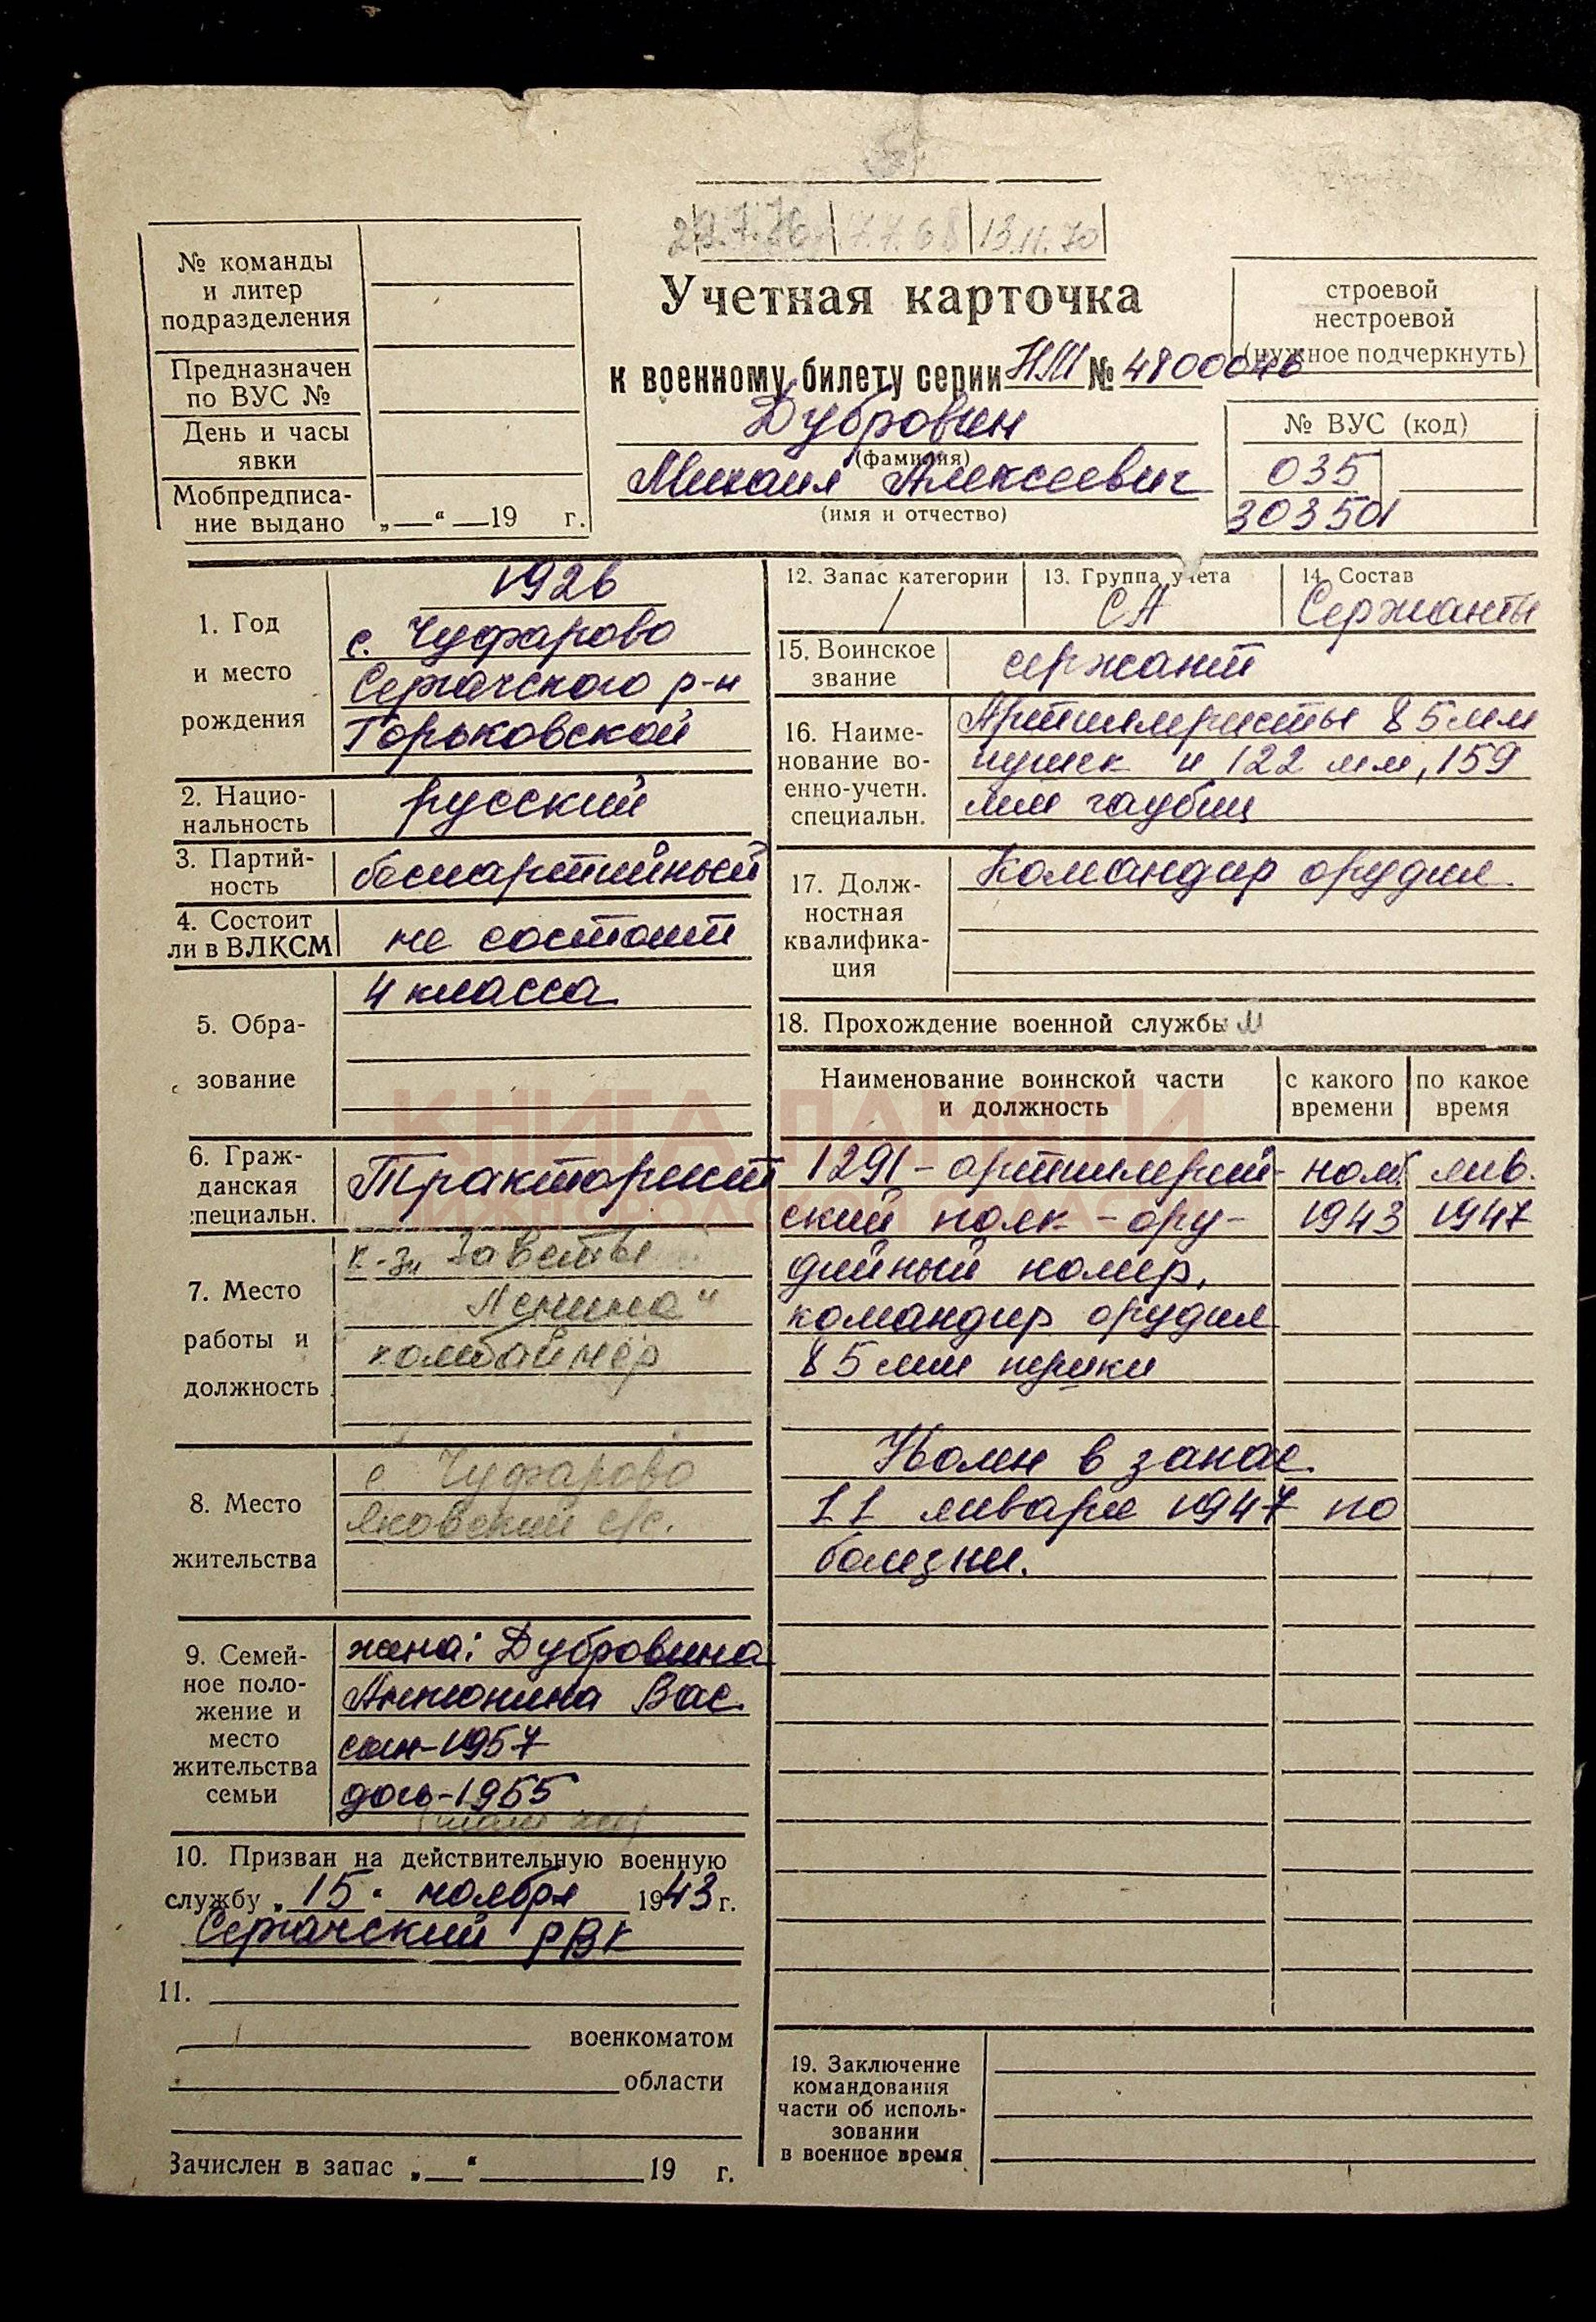 7.7.68 13.11.70
№ команды
и литер
подразделения
Предназначен
по ВУС №
День и часы
явки
Мобпредписа-
ние выдано „—“ —19 г.
Учетная карточка
к военному билету серии НЛ № 4800046
Дубровин
(фамилия)
Михаил Алексеевич
(имя и отчество)
строевой
нестроевой
(нужное подчеркнуть)
№ ВУС (код)
035
1. Год
и место
рождения
1926
с. Чуфарово
Сергачского р-н
Горьковской
2. Нацио-
нальность
русский
3. Партий-
ность
беспартийный
4. Состоит
ли в ВЛКСМ
не состоит
5. Обра-
зование
4 класса
6. Граж-
данская
специальн.
Тракторист
7. Место
работы и
должность
к-з „Заветы
Ленина“
комбайнёр
8. Место
жительства
с. Чуфарово
Яновский с/с.
9. Семей-
ное поло-
жение и
место
жительства
семьи
жена: Дубровина
Антонина Вас.
сын-1957
дочь-1955
(там же)
10. Призван на действительную военную
службу „15“ ноября 1943 г.
Сергачский РВК
11.
военкоматом
области
Зачислен в запас „—“ 19 г.
12. Запас категории
/
13. Группа учета
СА
14. Состав
Сержанты
15. Воинское
звание
сержант
16. Наиме-
нование во-
енно-учетн.
специальн.
Артиллеристы 85 мм
пушек и 122 мм, 159
мм гаубиц
17. Долж-
ностная
квалифика-
ция
Командир орудия.
18. Прохождение военной службы
Наименование воинской части
и должность
с какого
времени
по какое
время
1291-артиллерий- нояб. янв.
ский полк-ору- 1943 1947
дийный номер,
командир орудия
85 мм пушки
Уволен в запас
11 января 1947 по
болезни.
19. Заключение
командования
части об исполь-
зовании
в военное время
КНИГА ПАМЯТИ
НИЖЕГОРОДСКОЙ ОБЛАСТИ